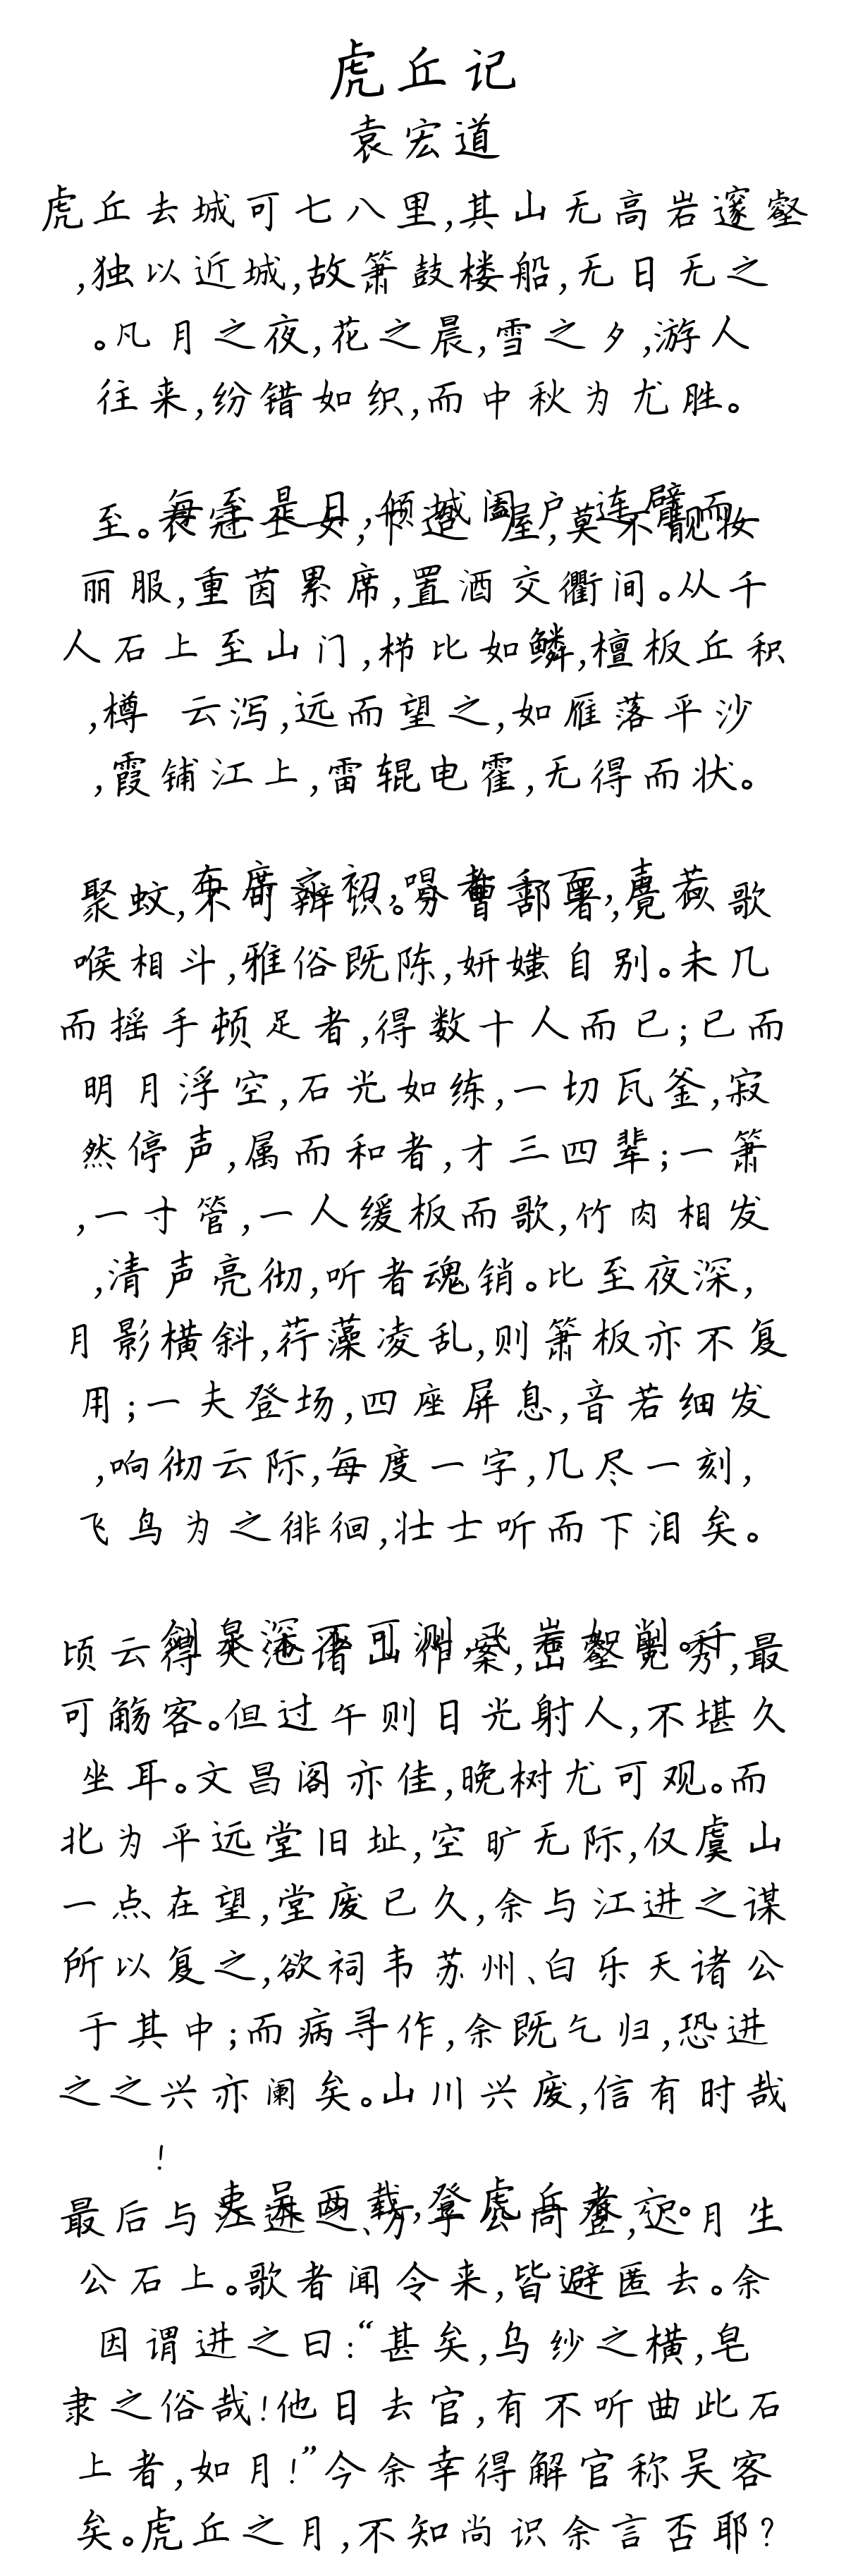 虎丘记
袁宏道
虎丘去城可七八里,其山无高岩邃壑
,独以近城,故箫鼓楼船,无日无之
。凡月之夜,花之晨,雪之夕,游人
往来,纷错如织,而中秋为尤胜。
每至是日,倾城阖户,连臂而
至。衣冠士女,下迨 屋,莫不靓妆
丽服,重茵累席,置酒交衢间。从千
人石上至山门,栉比如鳞,檀板丘积
,樽 云泻,远而望之,如雁落平沙
,霞铺江上,雷辊电霍,无得而状。
布席之初,唱者千百,声若
聚蚊,不可辨识。分曹部署,竞以歌
喉相斗,雅俗既陈,妍媸自别。未几
而摇手顿足者,得数十人而已;已而
明月浮空,石光如练,一切瓦釜,寂
然停声,属而和者,才三四辈;一箫
,一寸管,一人缓板而歌,竹肉相发
,清声亮彻,听者魂销。比至夜深,
月影横斜,荇藻凌乱,则箫板亦不复
用;一夫登场,四座屏息,音若细发
,响彻云际,每度一字,几尽一刻,
飞鸟为之徘徊,壮士听而下泪矣。
剑泉深不可测,飞岩如削。千
顷云得天池诸山作案,峦壑竞秀,最
可觞客。但过午则日光射人,不堪久
坐耳。文昌阁亦佳,晚树尤可观。而
北为平远堂旧址,空旷无际,仅虞山
一点在望,堂废已久,余与江进之谋
所以复之,欲祠韦苏州、白乐天诸公
于其中;而病寻作,余既乞归,恐进
之之兴亦阑矣。山川兴废,信有时哉
!
吏吴两载,登虎丘者六。
最后与江进之、方子公同登,迟月生
公石上。歌者闻令来,皆避匿去。余
因谓进之曰:“甚矣,乌纱之横,皂
隶之俗哉!他日去官,有不听曲此石
上者,如月!”今余幸得解官称吴客
矣。虎丘之月,不知尚识余言否耶?